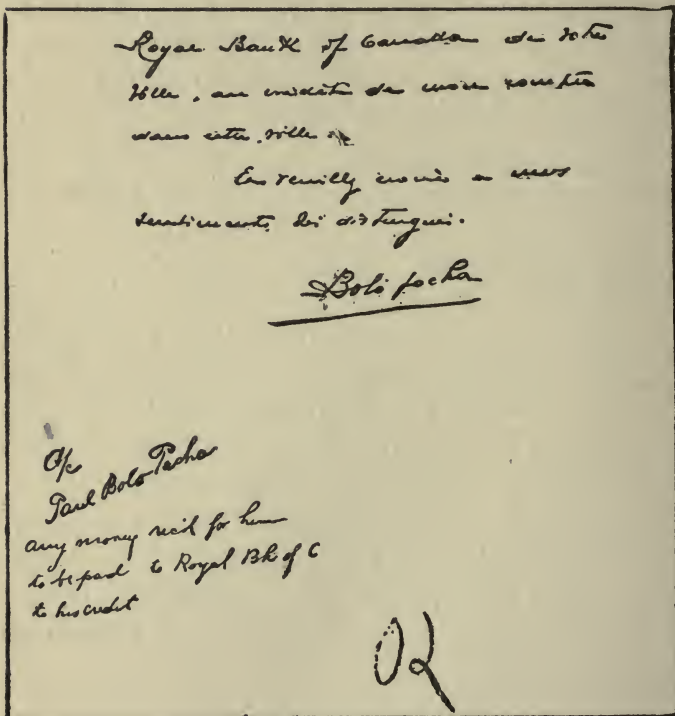 Royal Bank of Canada de votre
ville, au crédit de mon compte
dans cette ville.
En veuillez croire à mes
sentiments les distingués.
Bolo pacha
A/c
Paul Bolo Pacha
any money rec'd for him
to be paid to Royal Bk of C
to his credit
OK